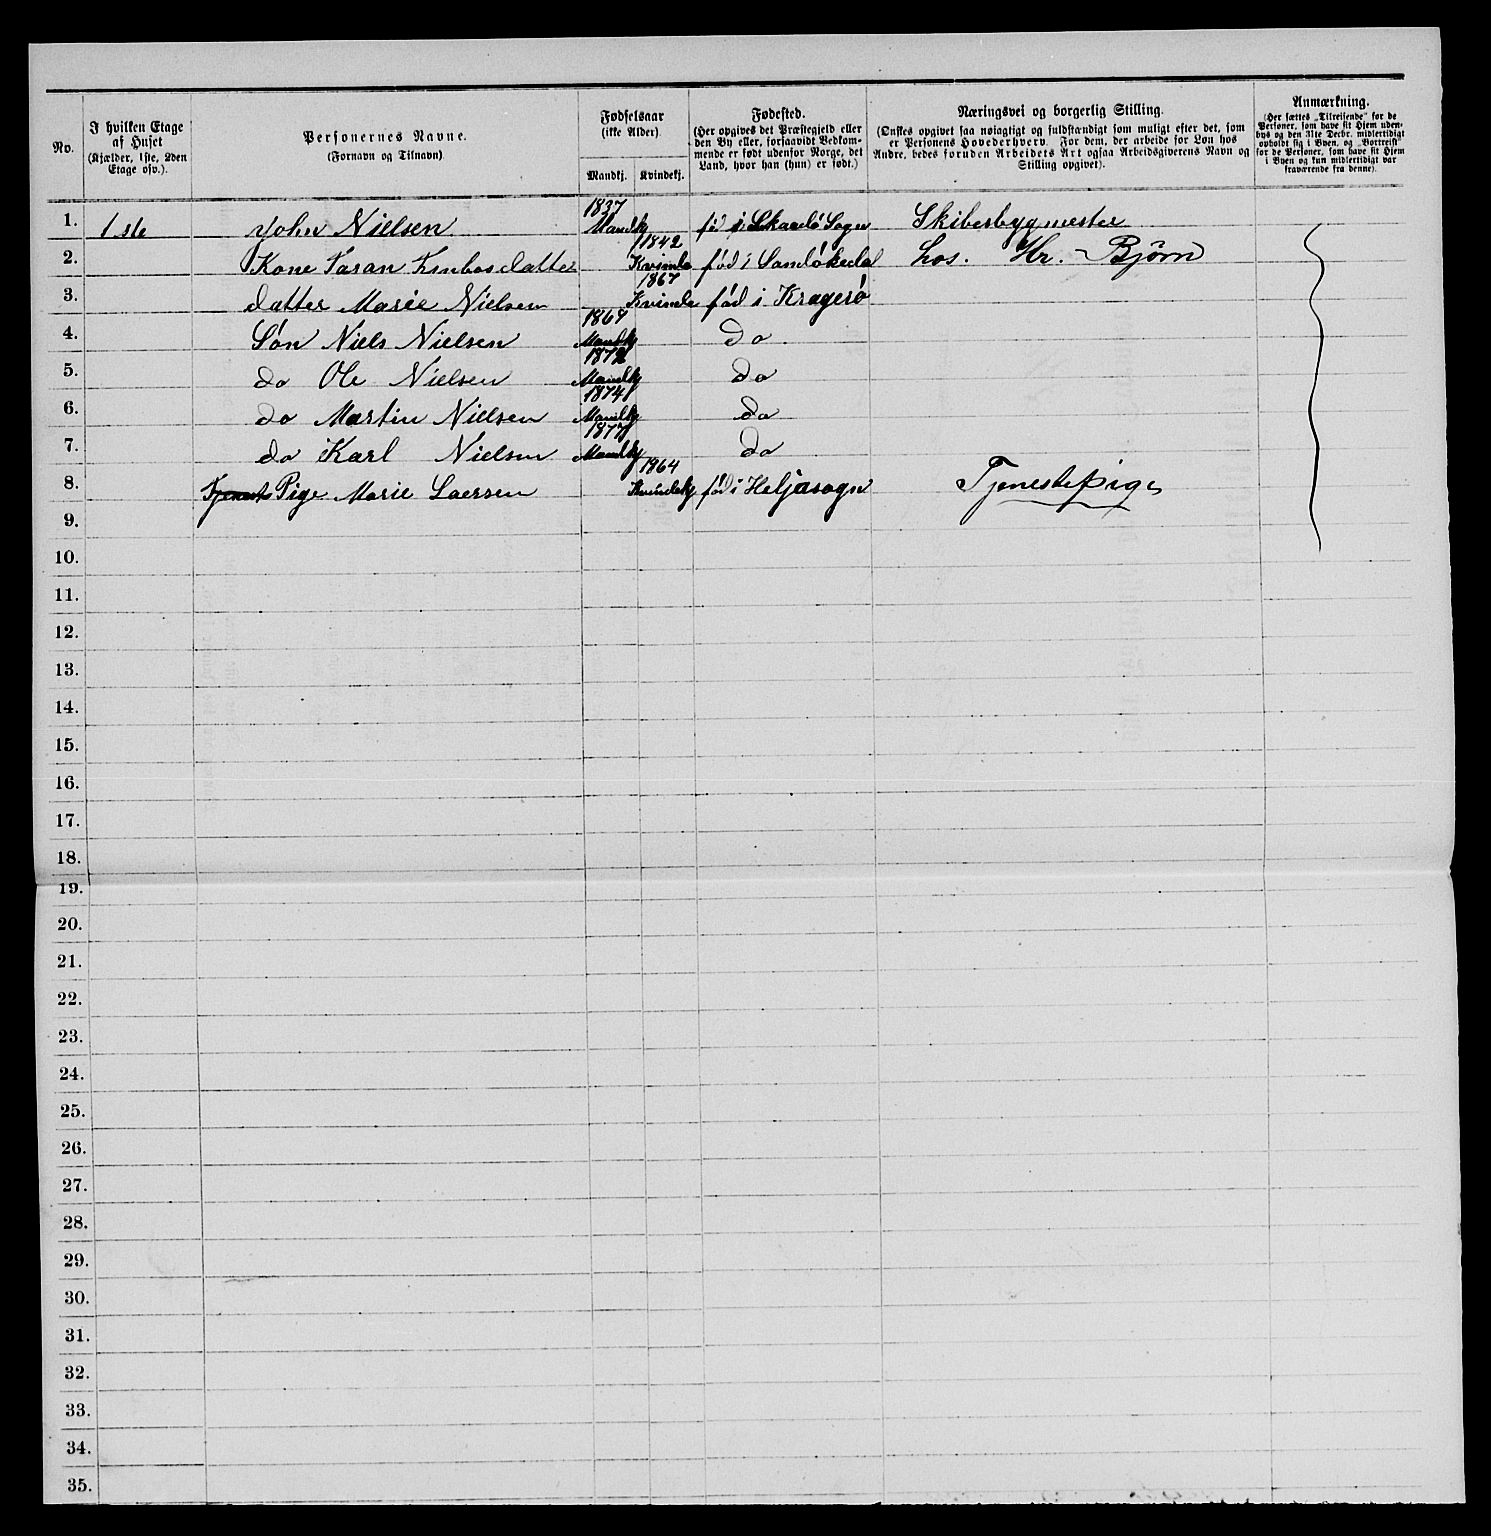 No.
I hvilken Etage af Huset (Kjælder, 1ste, 2den Etage osv.).
Personernes Navne. (Fornavn og Tilnavn)
Fødselsaar (ikke Alder).
Mandkj. Kvindekj.
Fødested. (Her opgives det Præstegjeld eller den By eller, forsaavidt Vedkommende er født udenfor Norge, det Land, hvor han (hun) er født.)
Næringsvei og borgerlig Stilling. (Ønskes opgivet saa nøiagtigt og fuldstændigt som muligt efter det, som er Personens Hovederhverv. For dem, der arbeide for Løn hos Andre, bedes foruden Arbeidets Art ogsaa Arbeidsgiverens Navn og Stilling opgivet).
Anmærkning. (Her sættes „Tilreisende" for de Personer, som have sit Hjem udenbys og den 31te Decbr. midlertidigt opholdt sig i Byen, og „Bortreist" for de Personer, som have sit Hjem i Byen og kun midlertidigt var fraværende fra denne).
1. 1ste John Nielsen 1837 Mandkj fød i Sogn Skibesbygmester
2. Kone 1842 Kvinde fød i hos. Hr. Bjørn
3. datter Marie Nielsen 1867 Kvinde fød i Kragerö
4. Sön Niels Nielsen 1869 Mandkj do
5. do Ole Nielsen 1872 Mandkj do
6. do Martin Nielsen 1874 Mandkj do
7. do Karl Nielsen 1877 Mandkj do
8. Pige Marie Laersen 1864 Kvindekj fød i Heljasogn Tjenestepige
9.
10.
11.
12.
13.
14.
15.
16.
17.
18.
19.
20.
21.
22.
23.
24.
25.
26.
27.
28.
29.
30.
31.
32.
33.
34.
35.